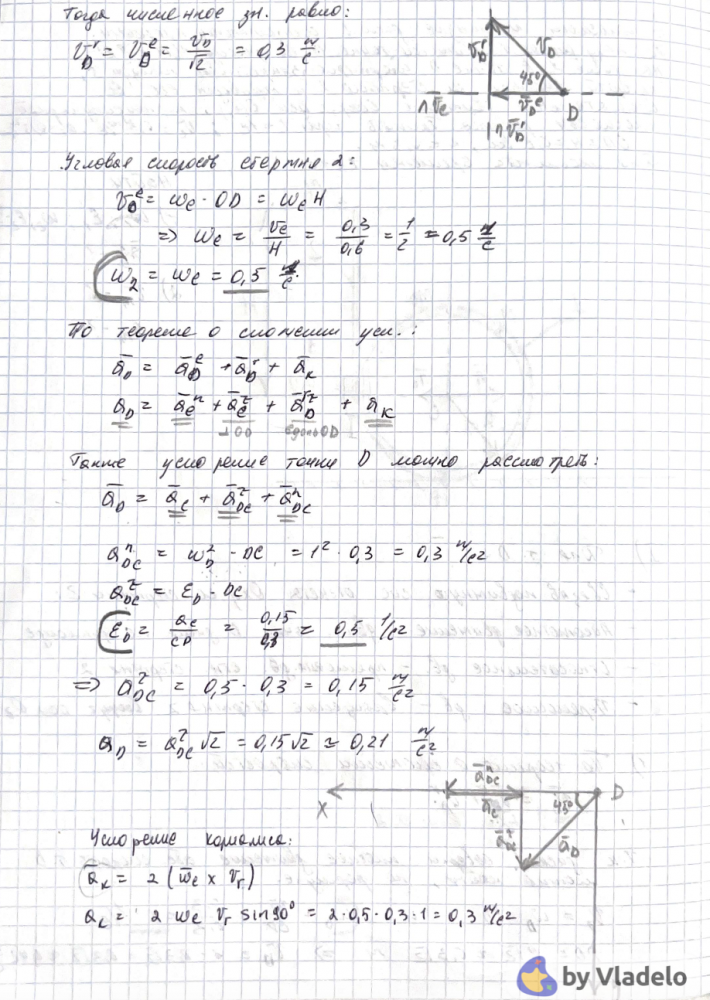 Тогда численное зн. равно:
v_D^r = v_D^e = v_D/√2 = 0,3 м/с
v_D^r
v_D
45°
v̄_D^e
D
Угловая скорость стержня 2:
v_D^e = ω_e · OD = ω_e H
=> ω_e = v_e/H = 0,3/0,6 = 1/2 = 0,5 1/с
ω_2 = ω_e = 0,5 1/с
По теореме о сложении уск.:
ā_D = ā_D^e + ā_D^r + ā_к
ā_D = ā_e^n + ā_e^τ + ā_D^r + ā_к
⊥OD вдоль OD
Также ускорение точки D можно рассмотреть:
ā_D = ā_C + ā_DC^τ + ā_DC^n
a_DC^n = ω_D^2 · DC = 1² · 0,3 = 0,3 м/с²
a_DC^τ = ε_D · DC
ε_D = a_C/CD = 0,15/0,3 = 0,5 1/с²
=> a_DC^τ = 0,5 · 0,3 = 0,15 м/с²
a_D = a_DC^τ √2 = 0,15√2 = 0,21 м/с²
ā_DC^n
X
ā_C
45°
D
ā_DC^τ
ā_D
Ускорение кориолиса:
ā_к = 2 (ω̄_e × v̄_r)
a_к = 2 ω_e v_r sin 90° = 2·0,5·0,3·1 = 0,3 м/с²
by Vladelo